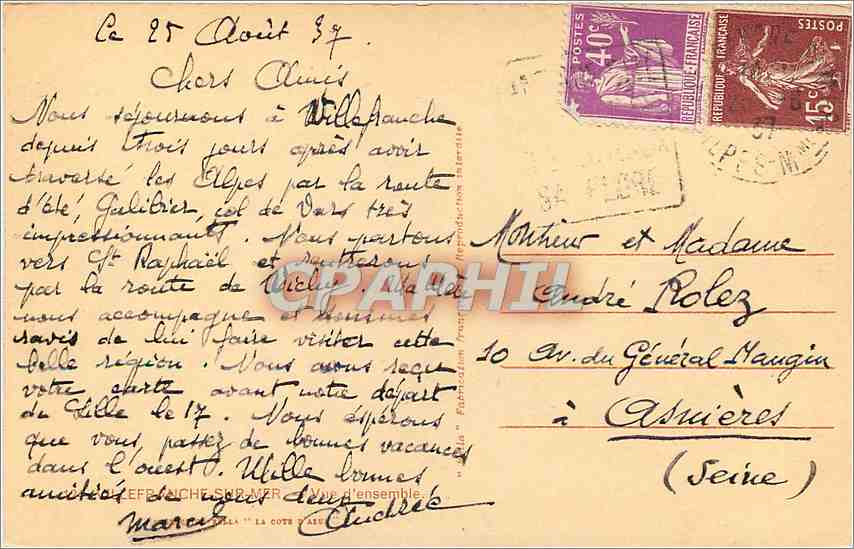 Le 25 Août 37.
Chers Amis
Nous séjournons à Villefranche
depuis trois jours après avoir
traversé les Alpes par la route
d'été, Galibier, col de Vars très
impressionnants. Nous partons
vers St Raphaël et rentrerons
par la route de Vichy.
nous accompagne et sommes
ravis de lui faire visiter cette
belle région. Nous avons reçu
votre carte avant notre départ
de Lille le 17. Nous espérons
que vous passez de bonnes vacances
dans l'ouest. Mille bonnes
amitiés de nous deux
Marcel Andrée
LEFRANCHE-SUR-MER. Vue d'ensemble.
" LA COTE D'AZUR
Fabrication Française Reproduction interdite
POSTES
40c
REPUBLIQUE-FRANÇAISE
REPUBLIQUE FRANÇAISE
POSTES
15c
37
SA FLORE
CPARHIL
Monsieur et Madame
André Rolez
10 Av. du Général Mangin
à Asnières
(Seine)